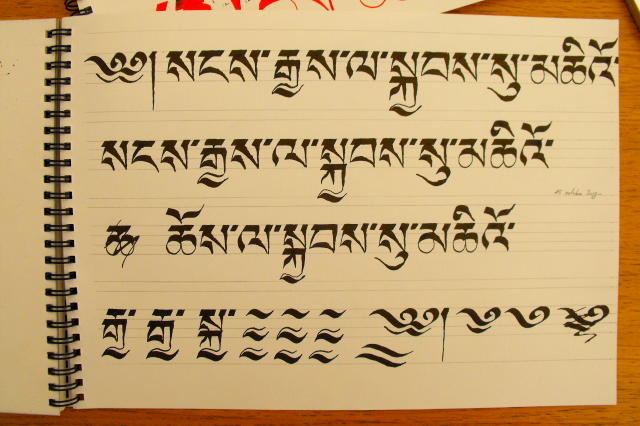 ༄༅། སངས་རྒྱས་ལ་སྐྱབས་སུ་མཆིའོ་
སངས་རྒྱས་ལ་སྐྱབས་སུ་མཆིའོ་
ཆོས་ལ་སྐྱབས་སུ་མཆིའོ་
རྒྱ་ རྒྱ་ སྐྱ་ ༄༅།